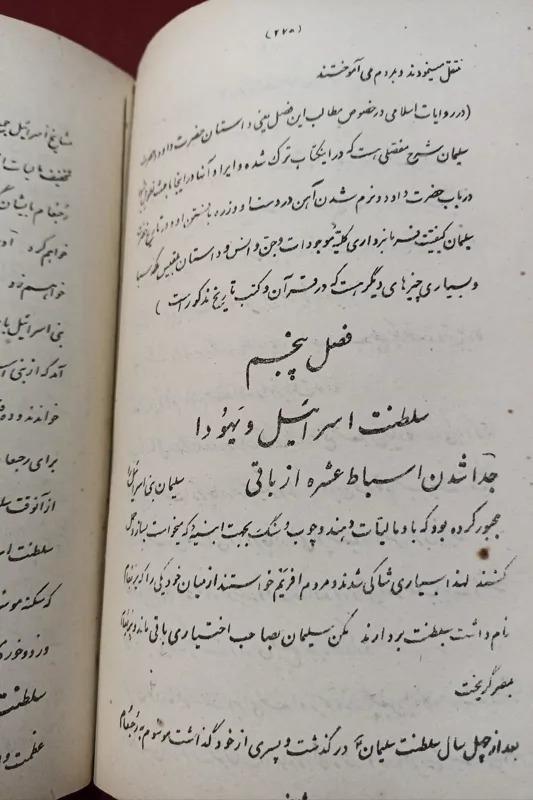 (۲۷۸)
نقل مینمودند و بمردم می آموختند
(در روایات اسلامی در خصوص مطالب این فصل یعنی داستان حضرت داود و حضرت
سلیمان شرح مفصلی است که در اینکتاب ترک شده و ایراد آنها در اینجا
در باب حضرت داود و نرم شدن آهن در دست او و زره بافتن او و در تاریخ حضرت
سلیمان کیفیت فرمانبرداری کلیه موجودات و جن و انس و داستان بلقیس ملکه سبا
و بسیاری چیزهای دیگر است که در قرآن و کتب تاریخ مذکور است)
فصل پنجم
سلطنت اسرائیل و یهودا
جدا شدن اسباط عشره از باقی سلیمان بنی اسرائیل را
مجبور کرده بود که باو مالیات دهند و چوب و سنگ بجهت ابنیه که میخواست بسازد حمل
کنند لهذا بسیاری شاکی شدند و مردم افریم خواستند از میان خود یکی را که یربعام
نام داشت سلطنت بردارند لکن سلیمان صاحب اختیاری باقی ماند و یربعام
بمصر گریخت
بعد از چهل سال سلطنت سلیمان در گذشت و پسری از خود گذاشت موسوم به رجبعام
مشایخ اسرائیل
تخفیف مالیات
رجبعام بایشان
خواهم کرد
خواهم زد
بنی اسرائیل
آمد که از بنی
خواندند و ده
برای رجبعام
از آنوقت
سلطنت
که سکنه
و زد و خورد
سلطنت
عظمت و